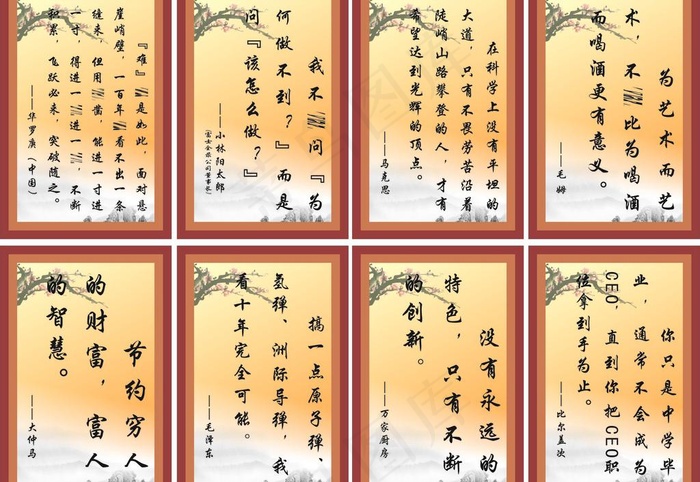 『难』是如此，面对悬
崖峭壁，一百年看不出一条
缝来，但用凿，能进一寸进
一寸，得进一进一，不断
积累，飞跃必来，突破随之。
——华罗庚（中国）
我不问『为
何做不到？』而是
问『该怎么做？』
——小林阳太郎
（富士全录公司董事长）
在科学上没有平坦的
大道，只有不畏劳苦沿着
陡峭山路攀登的人，才有
希望达到光辉的顶点。
——马克思
为艺术而艺
术，不比为喝酒
而喝酒更有意义。
——毛姆
节约穷人
的财富，富人
的智慧。
——大仲马
搞一点原子弹、
氢弹、洲际导弹，我
看十年完全可能。
——毛泽东
没有永远的
特色，只有不断
的创新。
——万家厨房
你只是中学毕
业，通常不会成为
CEO，直到你把CEO职
位拿到手为止。
——比尔盖茨